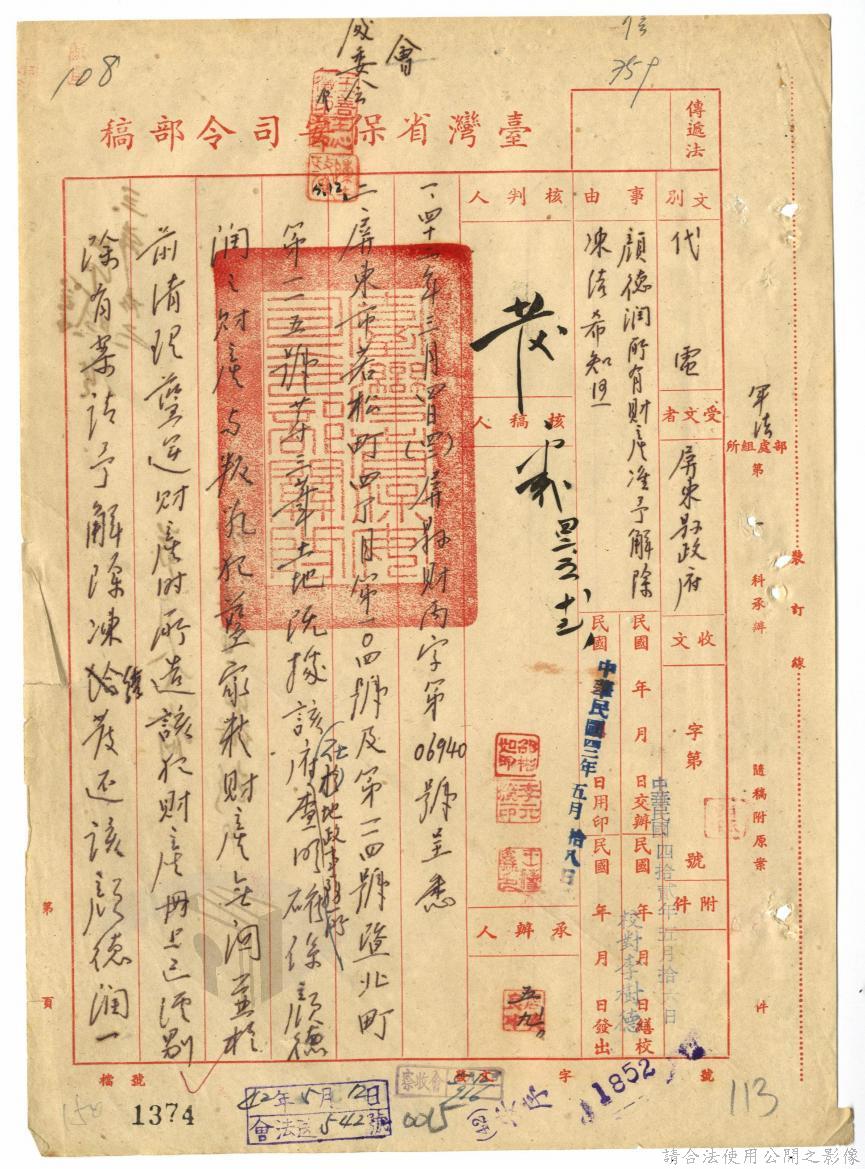 108
會
成委会
759
臺灣省保安司令部稿
傳遞法
文別
代電
受文者
屏東縣政府
事由
顏德潤所有財產准予解除
凍結希知照
核判人
核稿人
承辦人
收文
字第
號
附件
軍法
部處組所
第
一
科承辦
隨稿附原案
件
裝訂線
民國 年 月 日交辦
民國 年 月 日繕校
民國 年 月 日用印
民國 年 月 日發出
中華民國四拾貳年五月拾六日
校對李樹德
中華民國四二年五月拾八日
一、四十二年三月四日(四二)屏縣財丙字第06940號呈悉
二、屏東市若松町四丁目第一〇四號及第一一四號暨北町
第一二五號等三筆土地既據該府查明(在地政事務所)確係顏德
潤之財產与叛亂犯藍家精財產無涉並於
前清理藍逆財產時所造該犯財產冊上已經剔
除有案該予解除凍結發還該顏德潤一
第 頁
檔號
發文 字 號
1374
42年5月12日
會法送542號
會收察
0015
11852
113
150
請合法使用公開之影像